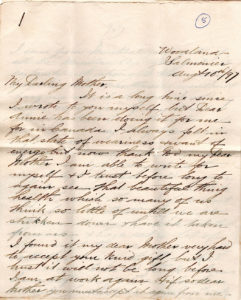 1
8
Woodland
Salmonier
Aug 10th/97
My Darling Mother,
It is a long time since
I wrote to you myself, but Dear
Annie has been doing it for me
in Canada. I always felt in
such state of weakness and want of
energy but now thank God my dear
Mother I am able to write for
myself & I trust before long to
again see that beautiful thing
health which so many of us
think so little of until we are
stricken down & have it taken
from us
I found it my dear Mother very hard
to accept your kind gift but I
trust it will not be long before
at work again
Mother you must